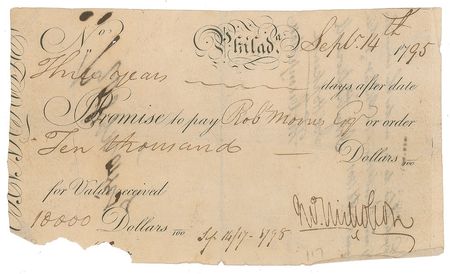 No. Philada. Sept. 14th 1795
Three years days after date
Promise to pay Robt. Morris Esqr or order
Ten thousand Dollars 100
for Value received
10000 Dollars 100 Sep 14/17 - 1798
Jno. Nicholson